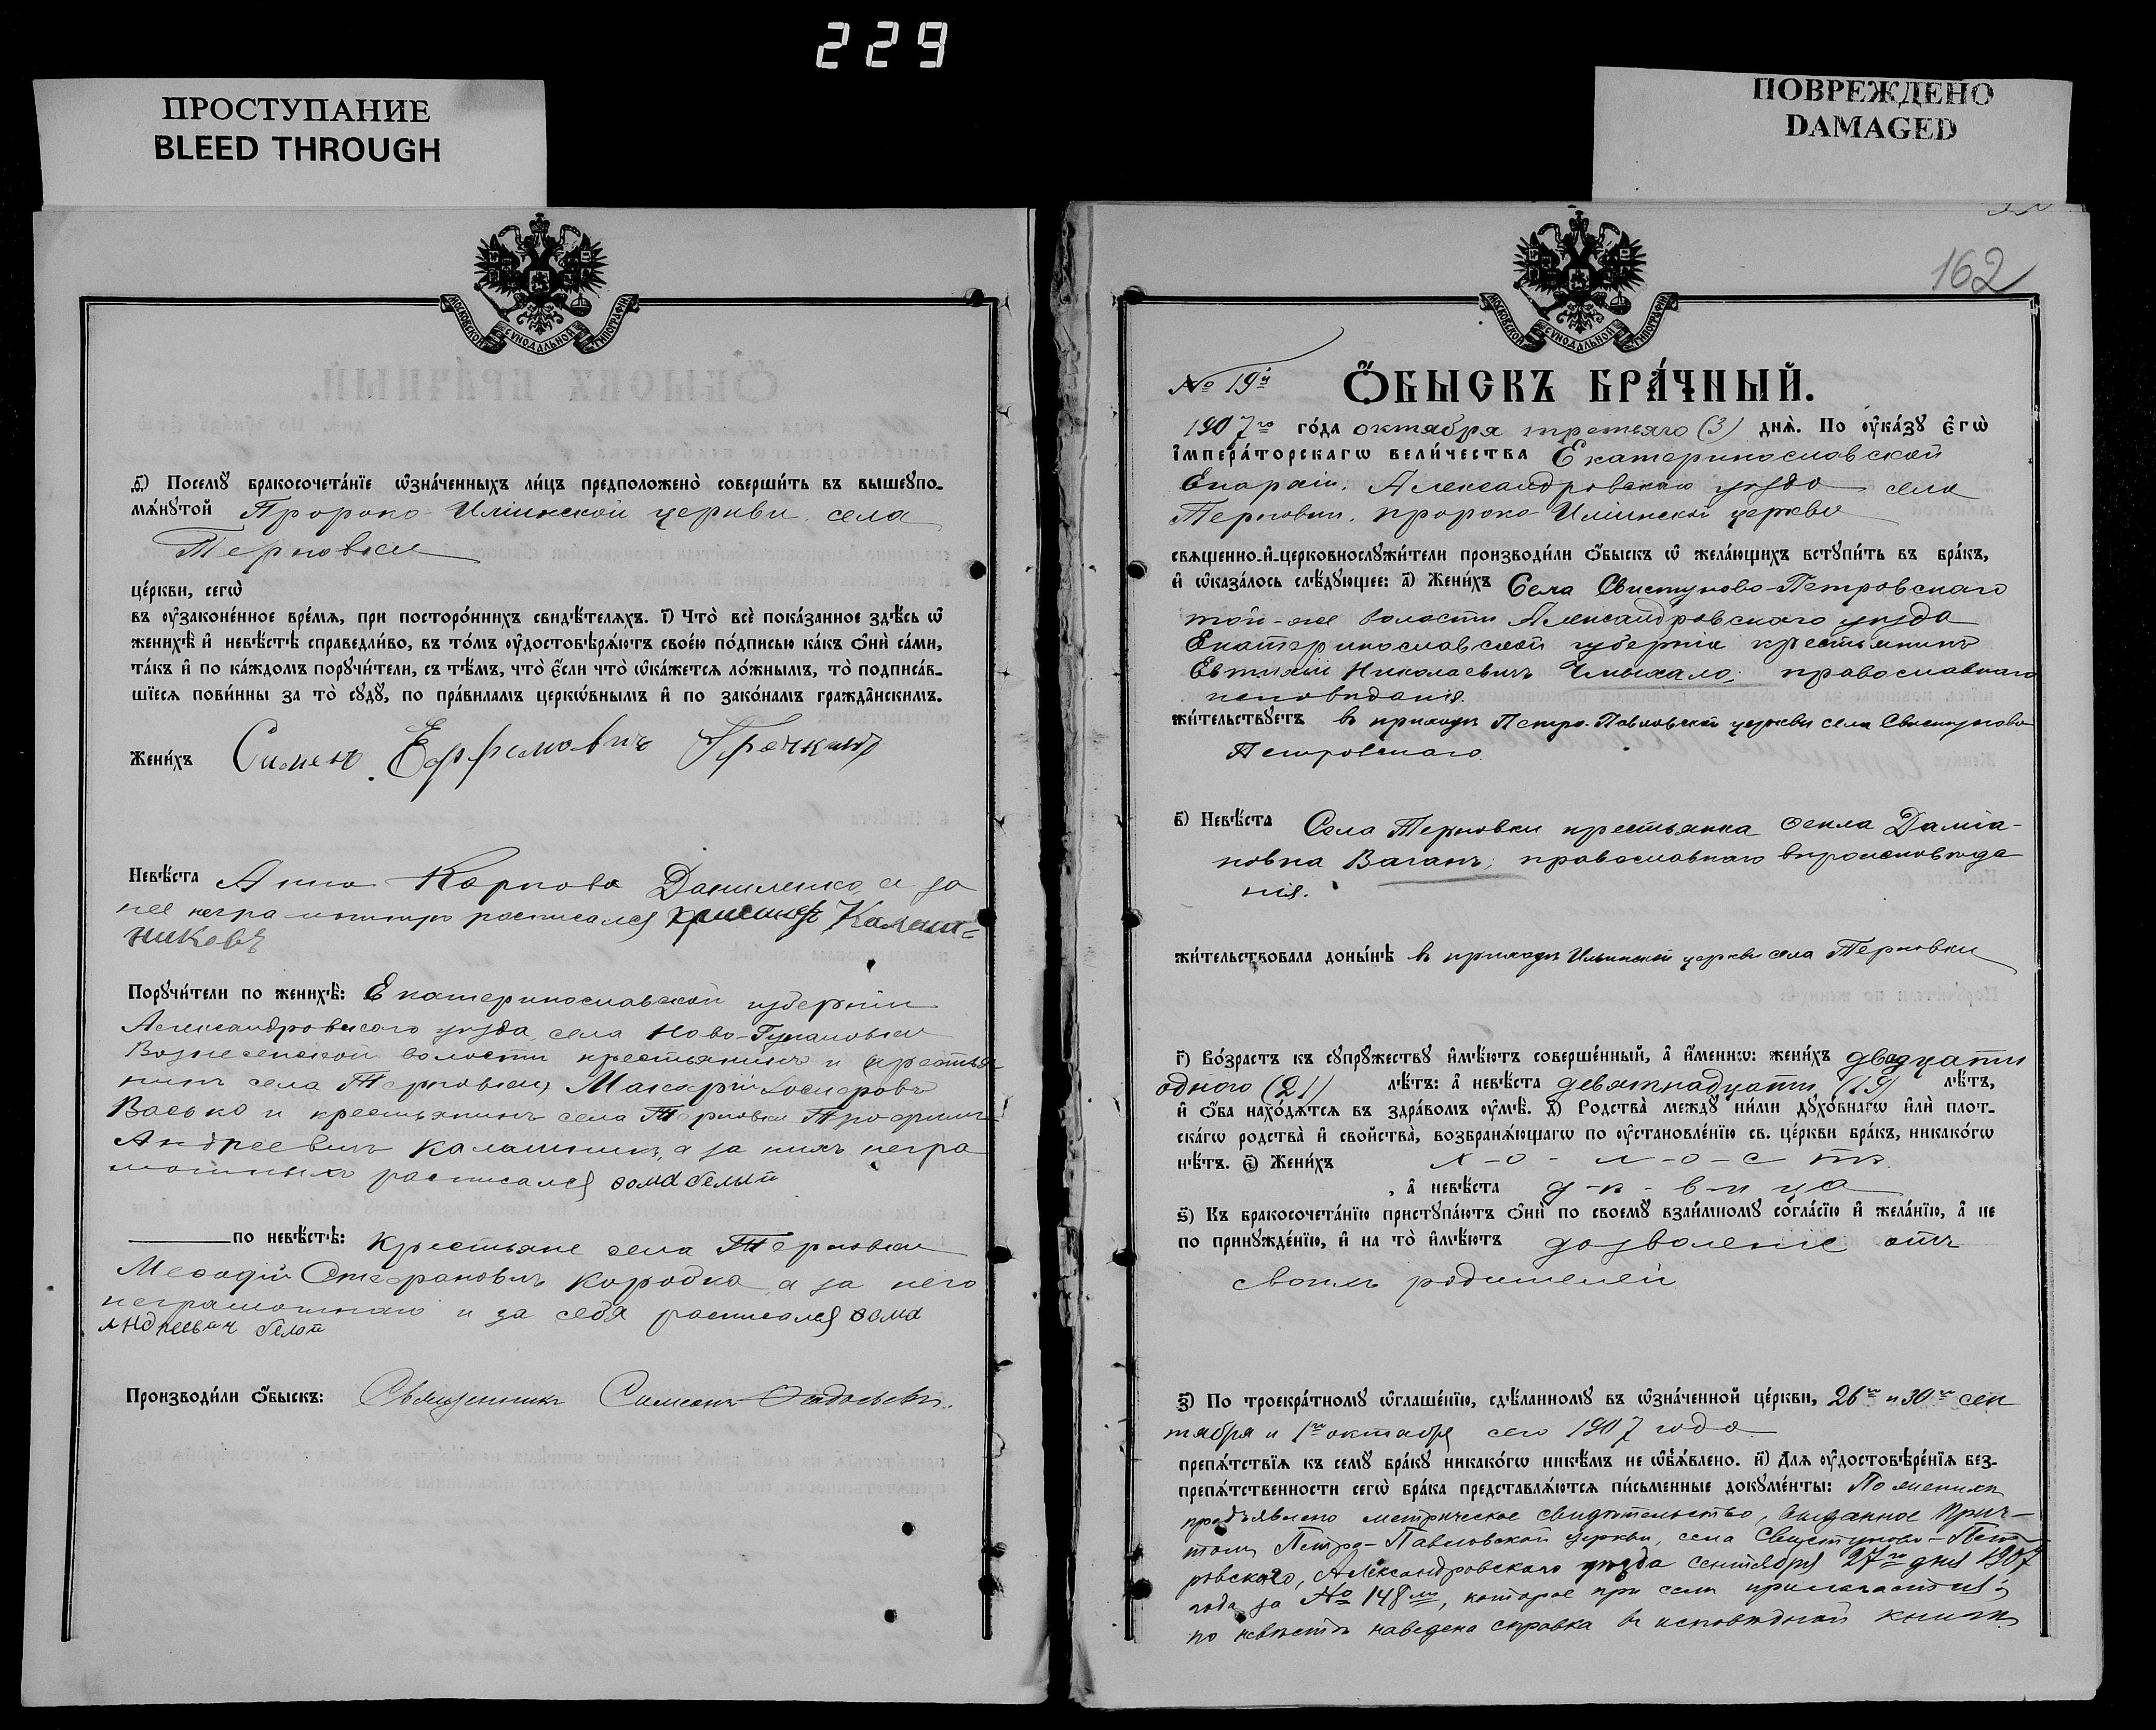 229
ПРОСТУПАНИЕ
BLEED THROUGH
МОСКОВСКОЙ СѴНОДАЛЬНОЙ ТИПОГРАФІИ
д҃) Посемꙋ̀ бракосочета́нїе ѡ҆зна́ченныхъ ли́цъ предположено̀ соверши́ть въ вышеꙋпо-
мѧ́нꙋтой Пророко-Иліинской церкви села
Терновки
це́ркви, сегѡ̀
въ ᲂу҆законе́нное вре́мѧ, при посторо́ннихъ свидѣ́телѧхъ. і҃) Что̀ всѐ пока́занное здѣ́сь ѡ҆
женихѣ̀ и҆ невѣ́стѣ справедли́во, въ то́мъ ᲂу҆достовѣрѧ́ютъ свое́ю по́дписью ка́къ ѻ҆нѝ са́ми,
та́къ и҆ по ка́ждомъ порꙋчи́тели, съ тѣ́мъ, что̀ є҆́сли что̀ ѡ҆ка́жетсѧ ло́жнымъ, то̀ подписа́в-
шїесѧ пови́нны за то̀ сꙋдꙋ̀, по пра́виламъ церкѡ́внымъ и҆ по зако́намъ гражда̑нскимъ.
Жени́хъ Симен Ефремовичъ
Невѣ́ста Анна Карпова Даниленко, а за
нее неграмотную расписался Калаш-
никовъ
Порꙋчи́тели по женихѣ̀: Екатеринославской губерніи
Александровскаго уѣзда села Ново-Гупаловки
Вознесенской волости крестьянинъ и крестья
нинъ села Терновки, Макарій
Васько и крестьянинъ села Терновки Трофимъ
Андреевичъ Калашник, а за нихъ негра
мотныхъ расписался Ѳома белый
по невѣ́стѣ: Крестьяне села Терновки
Меѳодій Стефановичъ Коробка, а за него
неграмотнаго и за себя расписался Ѳома
Андреевич белый
Производи́ли ѻ҆́быскъ: Священникъ Симеонъ
ПОВРЕЖДЕНО
DAMAGED
162
МОСКОВСКОЙ СѴНОДАЛЬНОЙ ТИПОГРАФІИ
№ 19й
Ѻ҆́БЫСКЪ БРА́ЧНЫЙ.
1907го го́да октября третьяго (3) днѧ̀. По ᲂу҆ка́зꙋ є҆гѡ̀
і҆мпера́торскагѡ вели́чества Екатеринославской
Епархіи, Александровскаго уѣзда села
Терновки, пророко-Иліинской церкви
свѧщенно-и҆-церковнослꙋжи́тели производи́ли ѻ҆́быскъ ѡ҆ жела́ющихъ встꙋпи́ть въ бра́къ,
и҆ ѡ҆каза́лось слѣ́дꙋющее: а҃) Жени́хъ Села Свистуново-Петровскаго
той-же волости Александровскаго уѣзда
Екатеринославской губерніи крестьянинъ
Евтихій Николаевичъ Чмыхало, православнаго
исповѣданія.
жи́тельствꙋетъ въ приходѣ Петро-Павловской церкви села Свистуново
Петровскаго.
в҃) Невѣ́ста Села Терновки крестьянка Ѳекла Даміа-
новна Ваганъ, православнаго вѣроисповѣда
нія.
жи́тельствовала доны́нѣ въ приходѣ Ильинской церкви села Терновки
г҃) Во́зрастъ къ сꙋпрꙋ́жествꙋ и҆мѣ́ютъ соверше́нный, а҆ и҆́меннѡ: жени́хъ двадцати
одного (21) лѣ́тъ: а҆ невѣ́ста девятнадцати (19) лѣ́тъ,
и҆ ѻ҆́ба нахо́дѧтсѧ въ здра́вомъ ᲂу҆мѣ̀. д҃) Родства̀ междꙋ̀ ни́ми дꙋхо́внагѡ и҆лѝ плот-
ска́гѡ родства̀ и҆ сво́йства̀, возбранѧ́ющагѡ по ᲂу҆становле́нїю св. це́ркви бра́къ, никако́гѡ
нѣ́тъ. є҃) Жени́хъ х-о-л-о-с-тъ.
, а҆ невѣ́ста д-ѣ-в-и-ца
ѕ҃) Къ бракосочета́нїю пристꙋпа́ютъ ѻ҆нѝ по своемꙋ̀ взаи́мномꙋ согла́сїю и҆ жела́нїю, а҆ не
по принꙋжде́нїю, и҆ на то̀ и҆мѣ́ютъ дозволеніе отъ
своихъ родителей
з҃) По троекра́тномꙋ ѡ҆глаше́нїю, сдѣ́ланномꙋ въ ѡ҆зна́ченной це́ркви, 26го и 30го сен
тября и 1го октября сего 1907 года
препѧ́тствїѧ къ семꙋ̀ бра́кꙋ никако́гѡ никѣ́мъ не ѡ҆б̾ѧ́влено. и҃) Длѧ ᲂу҆достовѣре́нїѧ без-
препѧ́тственности сегѡ̀ бра́ка представлѧ́ютсѧ пи́сьменные докꙋме́нты: По женихѣ
предъявлено метрическое свидѣтельство, выданное прич-
томъ Петро-Павловской церкви, села Свистуново-Пет
ровскаго, Александровскаго уѣзда сентября 27го дня 1907
года за № 148мъ, которое при семъ прилагается;
по невѣстѣ наведена справка въ исповѣдной книгѣ